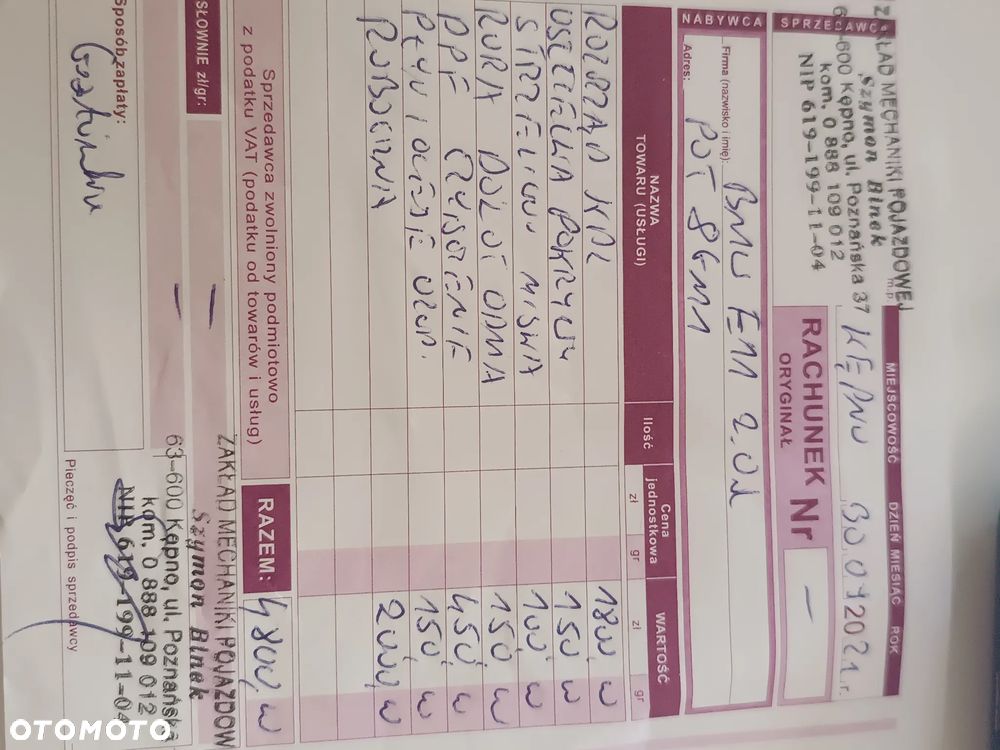 ZAKŁAD MECHANIKI POJAZDOWEJ
Szymon Binek
63-600 Kępno, ul. Poznańska 37
kom. 0 888 109 012
NIP 619-199-11-04
m.p.
SPRZEDAWCA
MIEJSCOWOŚĆ DZIEŃ MIESIĄC ROK
KĘPNO 30.01 2021 r.
RACHUNEK Nr —
ORYGINAŁ
NABYWCA
Firma (nazwisko i imię): BMW E91 2.0d
Adres: POT 8GM1
NAZWA TOWARU (USŁUGI)
Ilość
Cena jednostkowa
zł gr
WARTOŚĆ
zł gr
ROZRZĄD KPL 1800,
USZCZELKA POKRYWY 150
100,
RURA DOLOT ODMA 150
DPF CZYSZCZENIE 450,
PŁYN I OLEJE 150,
ROBOCIZNA 2000,
Sprzedawca zwolniony podmiotowo
z podatku VAT (podatku od towarów i usług)
RAZEM: 4800,
SŁOWNIE zł/gr: —
—
Sposób zapłaty:
Gotówka
ZAKŁAD MECHANIKI POJAZDOW
Szymon Binek
63-600 Kępno, ul. Poznańska
kom. 0 888 109 012
NIP 619-199-11-04
Pieczęć i podpis sprzedawcy
OTOMOTO